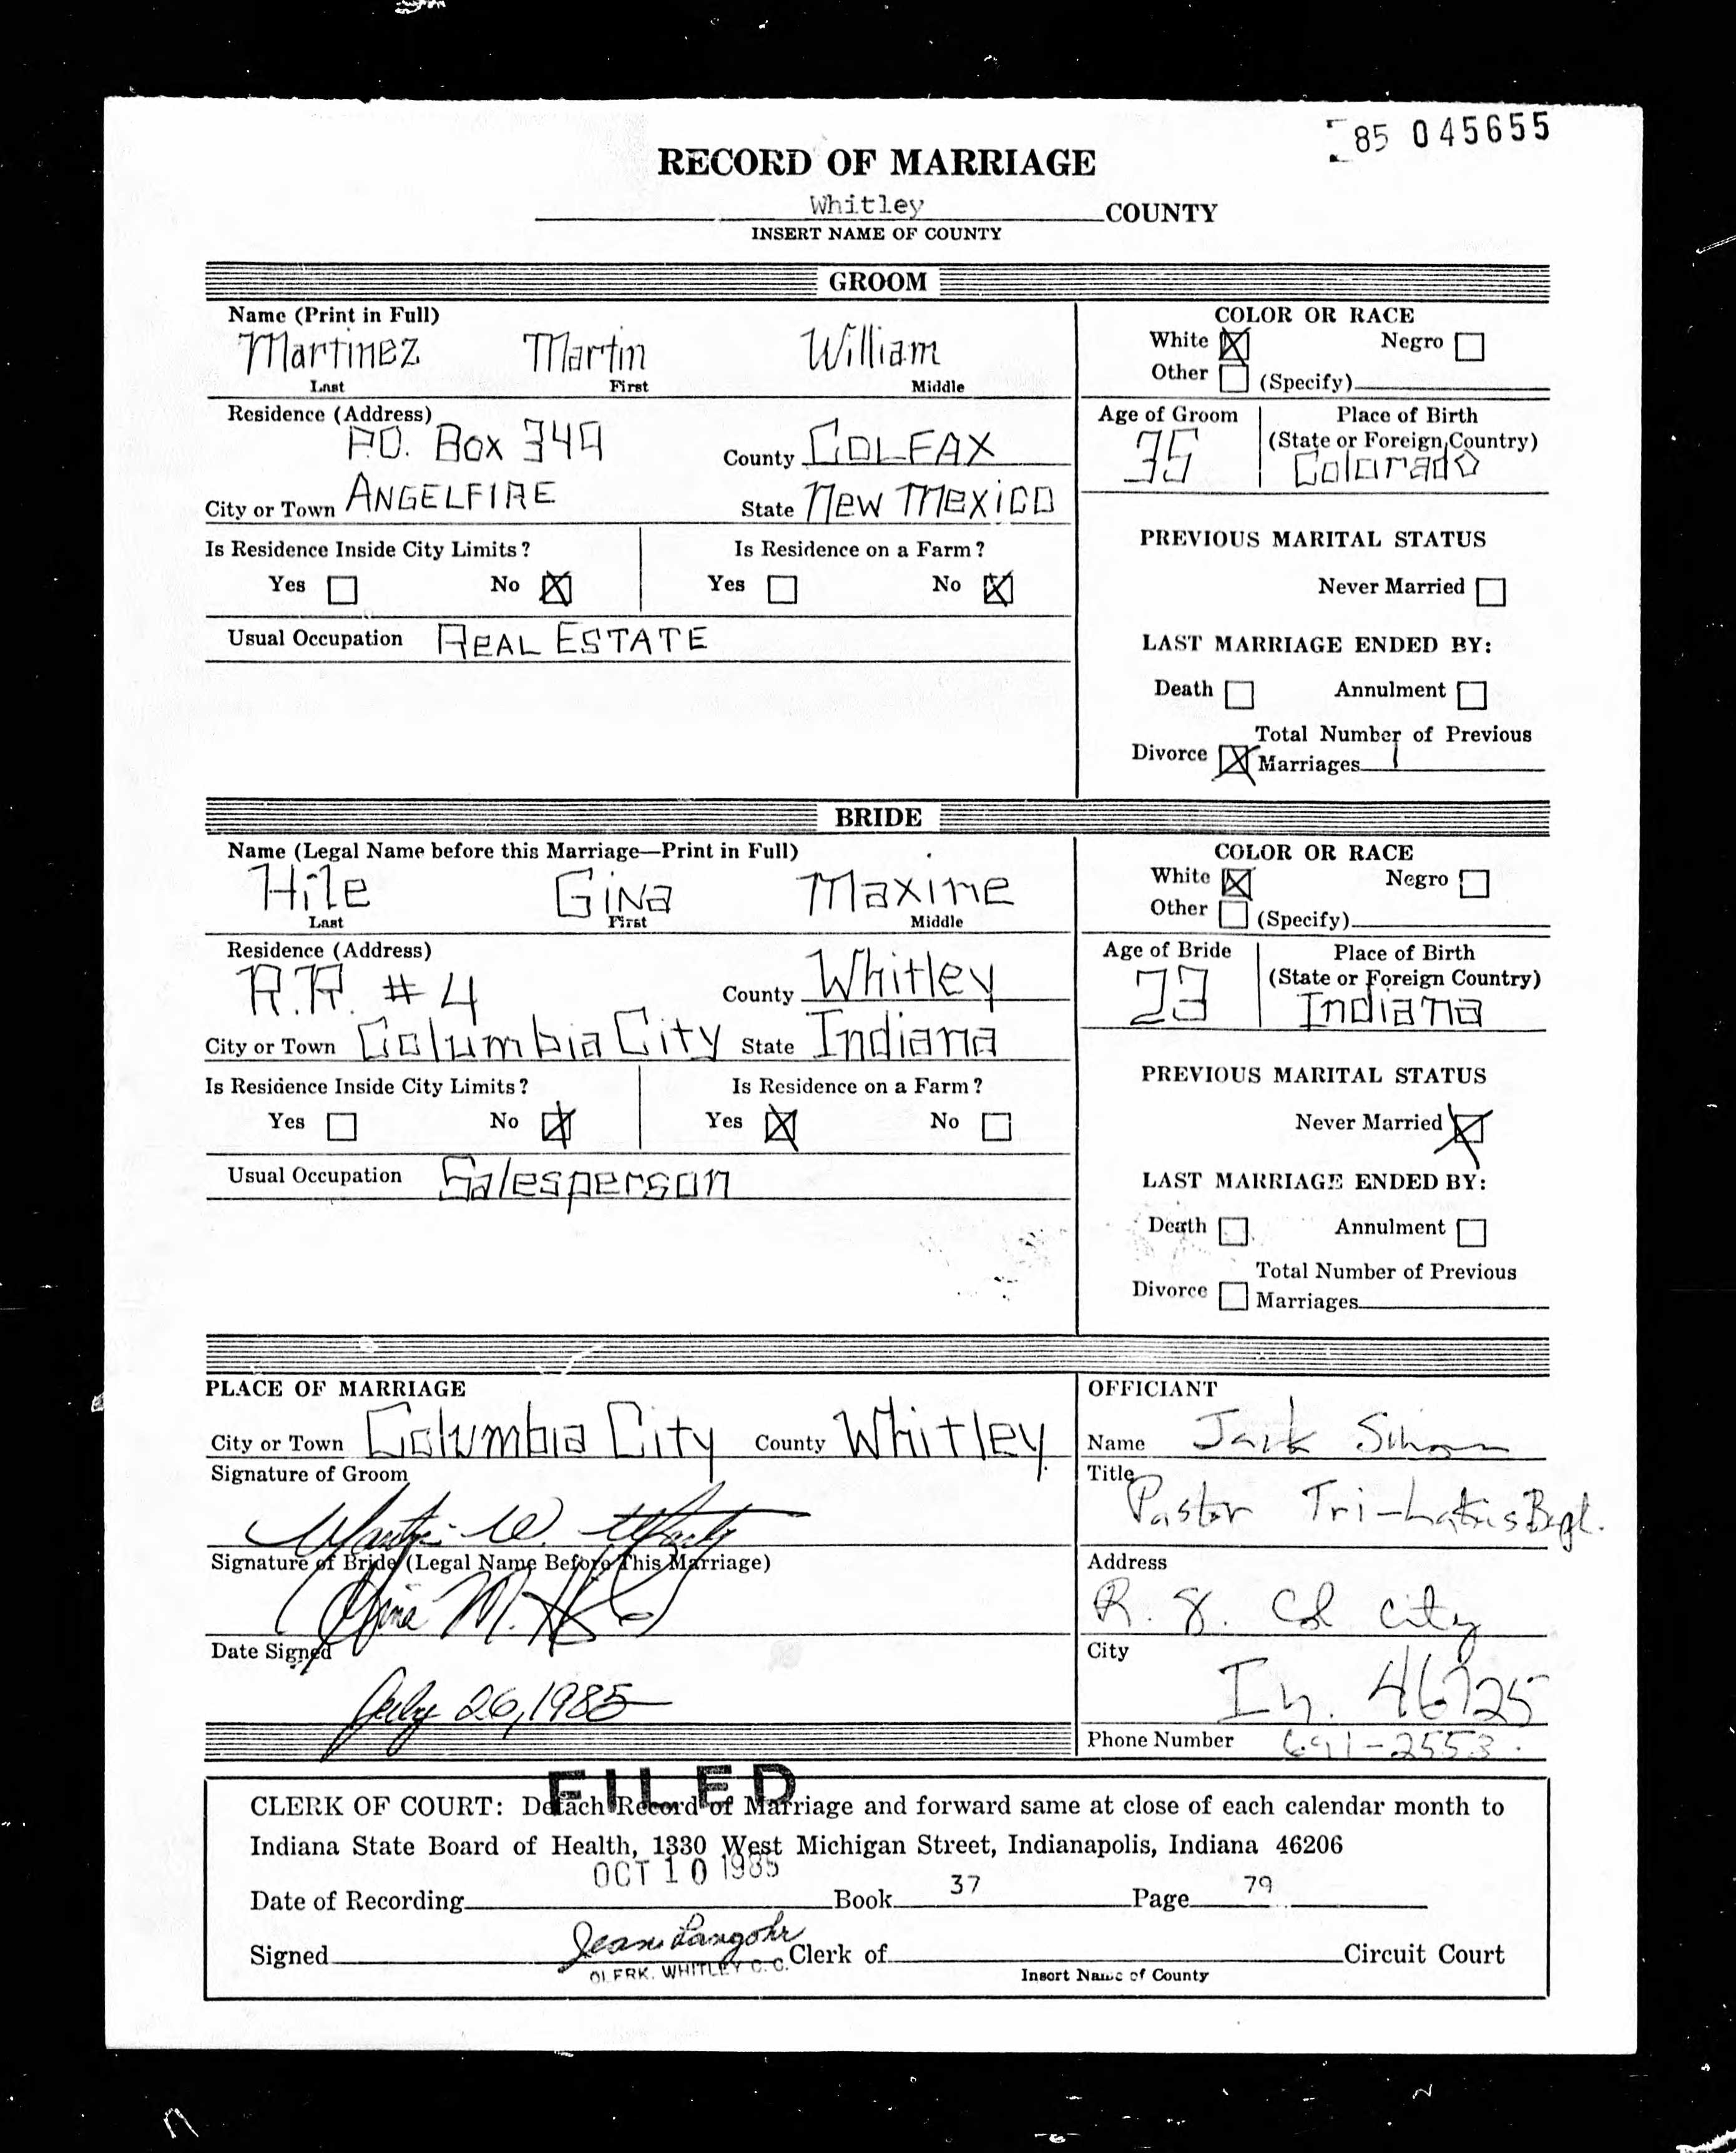 85 045655
RECORD OF MARRIAGE
Whitley COUNTY
INSERT NAME OF COUNTY
GROOM
Name (Print in Full)
Martinez Martin William
Last First Middle
COLOR OR RACE
White ☒ Negro ☐
Other ☐ (Specify)
Residence (Address)
P.O. Box 349 County COLFAX
City or Town ANGELFIRE State New Mexico
Age of Groom 35
Place of Birth
(State or Foreign Country)
Colorado
Is Residence Inside City Limits?
Yes ☐ No ☒
Is Residence on a Farm?
Yes ☐ No ☒
Usual Occupation REAL ESTATE
PREVIOUS MARITAL STATUS
Never Married ☐
LAST MARRIAGE ENDED BY:
Death ☐ Annulment ☐
Divorce ☒ Total Number of Previous
Marriages 1
BRIDE
Name (Legal Name before this Marriage—Print in Full)
Hile Gina Maxine
Last First Middle
COLOR OR RACE
White ☒ Negro ☐
Other ☐ (Specify)
Residence (Address)
R.R. #4 County Whitley
City or Town Columbia City State Indiana
Age of Bride 23
Place of Birth
(State or Foreign Country)
Indiana
Is Residence Inside City Limits?
Yes ☐ No ☒
Is Residence on a Farm?
Yes ☒ No ☐
Usual Occupation Salesperson
PREVIOUS MARITAL STATUS
Never Married ☒
LAST MARRIAGE ENDED BY:
Death ☐ Annulment ☐
Divorce ☐ Total Number of Previous
Marriages
PLACE OF MARRIAGE
City or Town Columbia City County Whitley
Signature of Groom
Martin W.
Signature of Bride (Legal Name Before This Marriage)
Gina M.
Date Signed
July 26, 1985
OFFICIANT
Name Jack Simon
Title
Pastor Tri-Lakes Bapt.
Address
R. 8. Col City
City
In. 46725
Phone Number 691-2553
FILED
CLERK OF COURT: Detach Record of Marriage and forward same at close of each calendar month to
Indiana State Board of Health, 1330 West Michigan Street, Indianapolis, Indiana 46206
OCT 10 1985
Date of Recording Book 37 Page 79
Signed Jean Langohr Clerk of Circuit Court
CLERK. WHITLEY C. C.
Insert Name of County